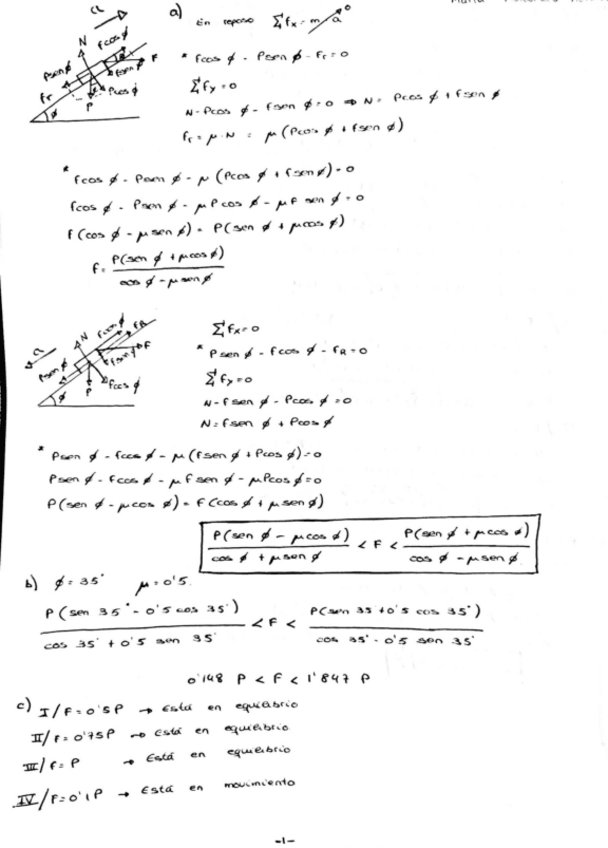 a) En reposo Σfx = m/a 0
* fcos φ - Psen φ - Fr = 0
Σfy = 0
N - Pcos φ - fsen φ = 0 ⇒ N = Pcos φ + fsen φ
fr = μ·N = μ(Pcos φ + fsen φ)
a
N
fcos φ
Psen φ
fsen φ
F
fr
Pcos φ
P
φ
* fcos φ - Psen φ - μ (Pcos φ + fsen φ) = 0
fcos φ - Psen φ - μ P cos φ - μF sen φ = 0
f (cos φ - μ sen φ) = P(sen φ + μcos φ)
f = P(sen φ + μcos φ) / cos φ - μ sen φ
a
N
fcos φ
fR
Psen φ
F
fsen φ
Pcos φ
P
φ
Σfx = 0
* Psen φ - fcos φ - fR = 0
Σfy = 0
N - fsen φ - Pcos φ = 0
N = fsen φ + Pcos φ
* Psen φ - fcos φ - μ(fsen φ + Pcos φ) = 0
Psen φ - fcos φ - μ f sen φ - μPcos φ = 0
P(sen φ - μcos φ) = F(cos φ + μ sen φ)
P(sen φ - μcos φ) / cos φ + μ sen φ < F < P(sen φ + μcos φ) / cos φ - μ sen φ
b) φ = 35° μ = 0'5.
P(sen 35° - 0'5 cos 35°) / cos 35° + 0'5 sen 35° < F < P(sen 35 + 0'5 cos 35°) / cos 35° - 0'5 sen 35°
0'148 P < F < 1'847 P
c) I/ F = 0'5P → Está en equilibrio
II/ F = 0'75P → Está en equilibrio
III/ F = P → Está en equilibrio
IV/ F = 0'1P → Está en movimiento
-1-